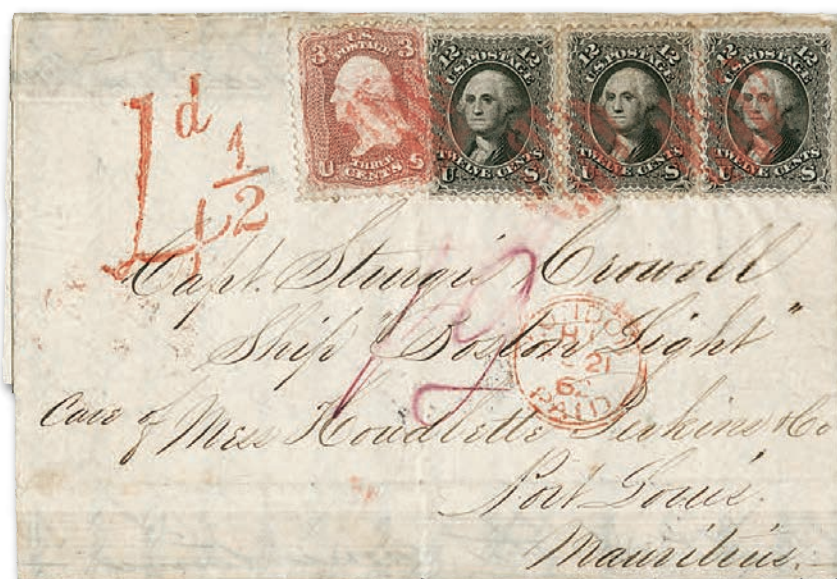 3 U.S. 3
POSTAGE
THREE
U CENTS S
12 12
U.S. POSTAGE
TWELVE CENTS
U S
12 12
U.S. POSTAGE
TWELVE CENTS
U S
12 12
U.S. POSTAGE
TWELVE CENTS
U S
1d
1/2
Capt. Sturgis Crowell
Ship "Boston Light"
21
62
PAID
Care of Mess Houdlette Perkins & Co
Port Louis.
Mauritius.